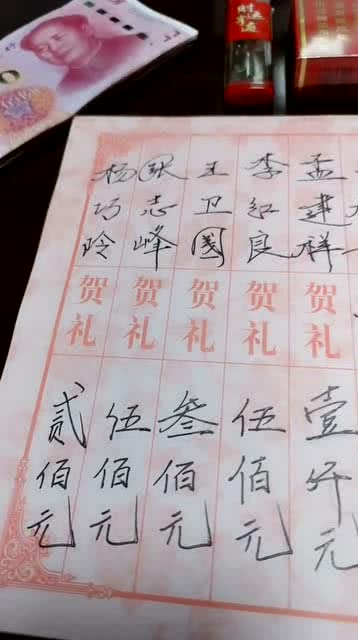 孟建祥 贺礼 壹仟元
李红良 贺礼 伍佰元
王卫国 贺礼 叁佰元
张志峰 贺礼 伍佰元
杨巧玲 贺礼 贰佰元